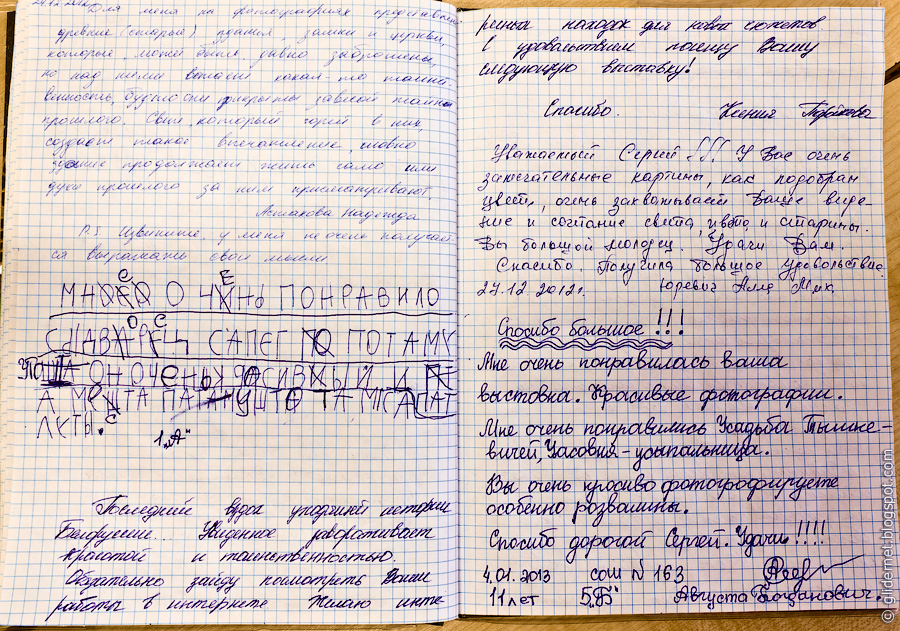 24.12.2012
Для меня на фотографиях представлены
древние (старые) здания замки и церкви,
которые может быть давно заброшены,
но над ними витает какая-то таинст
венность, будто они укрыты завесой тайны
прошлого. Свет, который горит в них,
создают такое впечатление, словно
здание продолжает жить само или
духи прошлого за ним присматривают.
Астахова Надежда
P.S Извините, у меня не очень получает-
ся выражать свои мысли
МН О ЧЕНЬ ПОНРАВИЛО
СЫ ДВОРЕЦ САПЕГ ПОТАМУ
ШТА ОН ОЧЕНЬ КРОСИВЫЙ И
А МЕСТА ПАТАМУШТО ТАМ САПАТ
ЛЕТЫ.
1 „А"
Последний вздох уходящей истории
Белоруссии... Увиденное завораживает
красотой и таинственностью.
Обязательно зайду посмотреть Ваши
работы в интернете Желаю инте
ресных находок для новых сюжетов.
С удовольствием посещу Вашу
следующую выставку!
Спасибо. Ксения
Уважаемый Сергей!!! У Вас очень
замечательные картины, как подобран
цвет, очень захватывает Ваше виде-
ние и сочтание света, цвета и старины.
Вы большой молодец. Удачи Вам.
Спасибо. Получила большое удовольствие.
27.12 2012г. Юревич Алла Мих.
Спосибо большое!!!
Мне очень понравилась ваша
выстовка. Красивые фотографии.
Мне очень понравились Усадьба Тышке-
вичей, Часовня-усыпальница.
Вы очень кросиво фотогрофируете
особенно розвалины.
Спосибо дорогой Сергей. Удачи!!!!
4.01.2013 сош N 163
11 лет 5 „Б" Августа Богданович.
© glidernet.blogspot.com